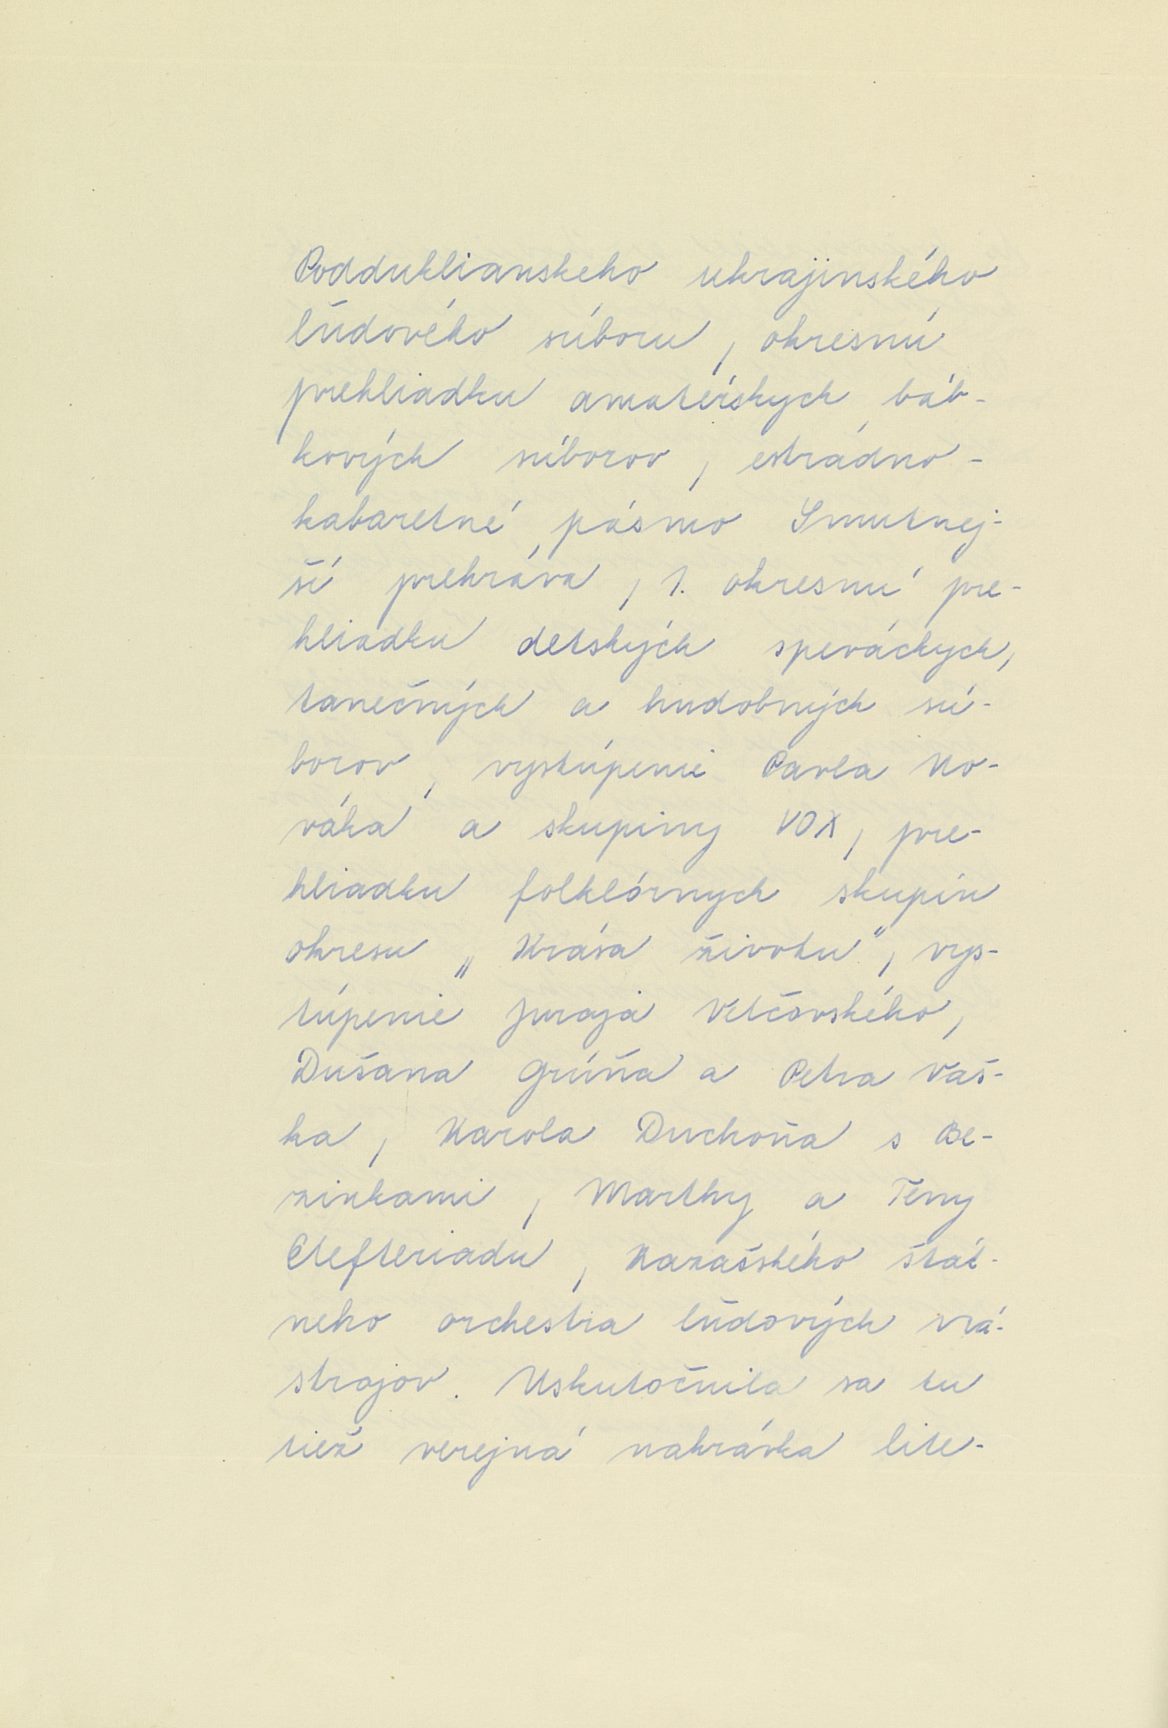 Podduklianskeho ukrajinského
ľudového súboru, okresnú
prehliadku amatérskych báb-
kových súborov, estrádno-
kabaretné pásmo Smutnej-
ší prehráva, 1. okresnú pre-
hliadku detských speváckych,
tanečných a hudobných sú-
borov, vystúpenie Pavla No-
váka a skupiny VOX, pre-
hliadku folklórnych skupín
okresu „Krása života", vys-
túpenie Juraja Vetčovského,
Dušana Grúňa a Petra Vaš-
ka, Karola Duchoňa s Be-
zinkami, Marthy a Teny
Elefteriadu, Kazašského štát-
neho orchestra ľudových ná-
strojov. Uskutočnila sa tu
tiež verejná nahrávka lite-